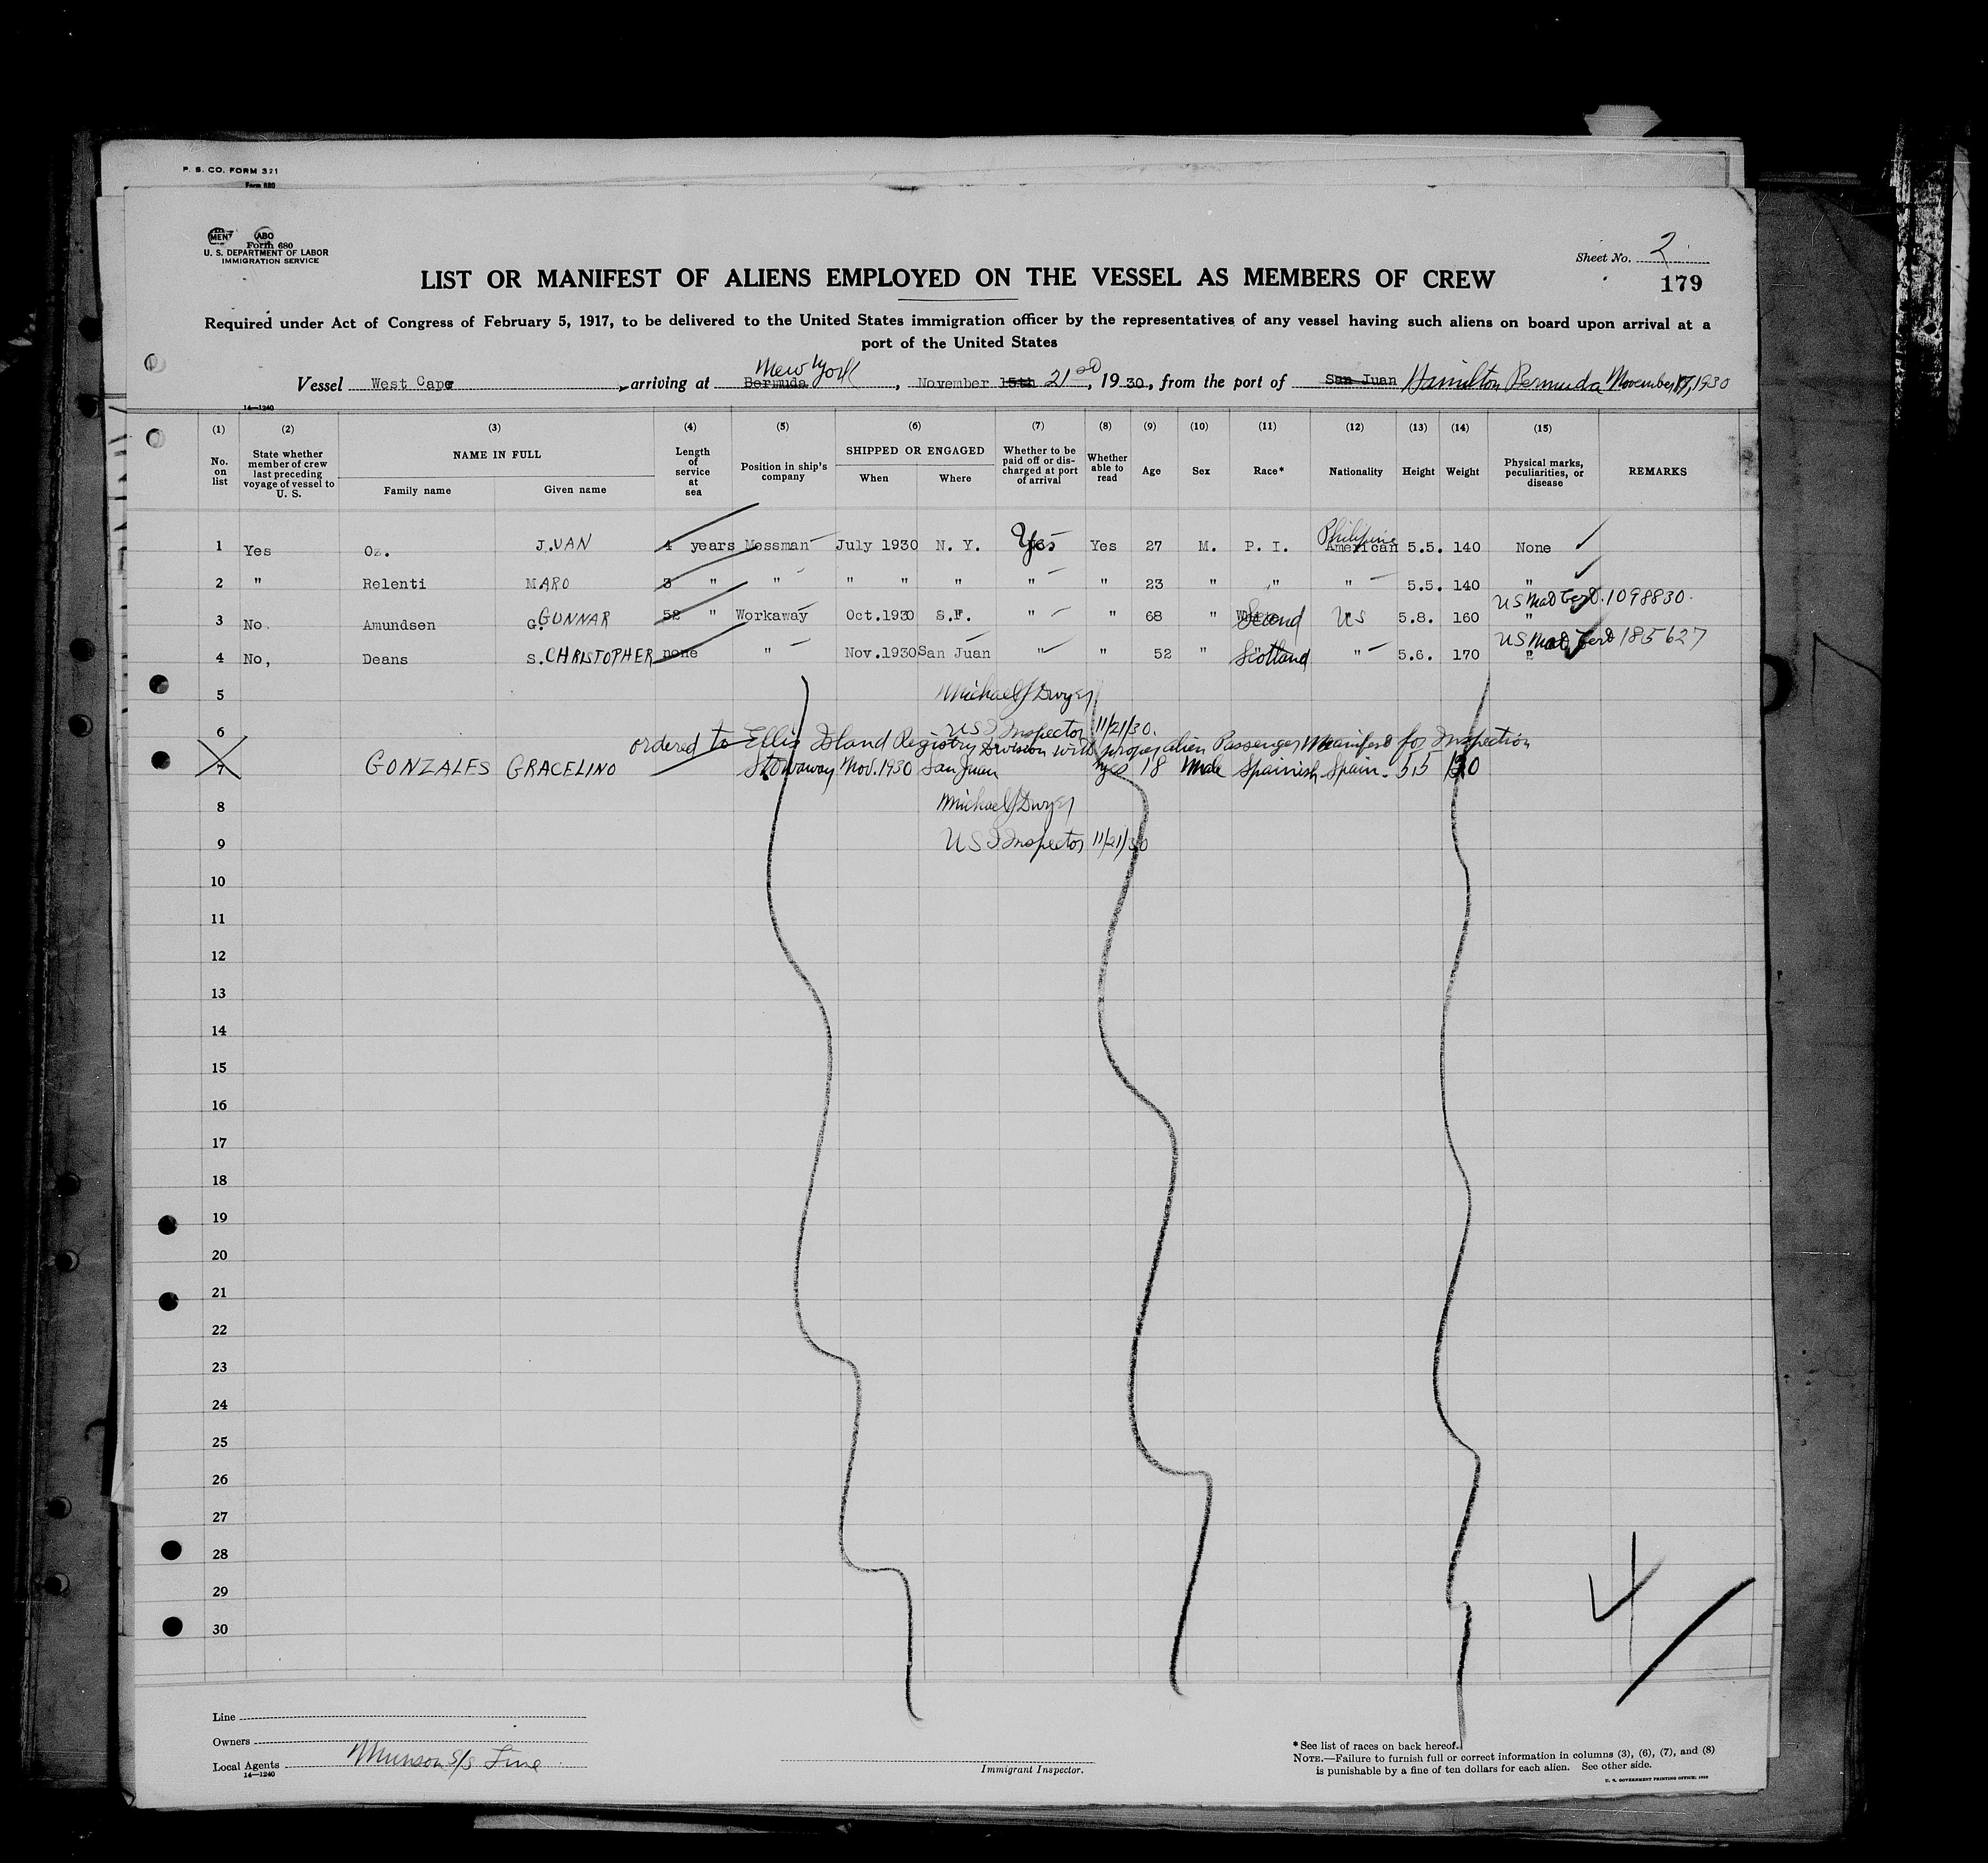 P. S. CO. FORM 321
Form 680
Form 680
U. S. DEPARTMENT OF LABOR
IMMIGRATION SERVICE
Sheet No. 2
179
LIST OR MANIFEST OF ALIENS EMPLOYED ON THE VESSEL AS MEMBERS OF CREW
Required under Act of Congress of February 5, 1917, to be delivered to the United States immigration officer by the representatives of any vessel having such aliens on board upon arrival at a
port of the United States
New York
Vessel West Cape, arriving at Bermuda, November 15th 21st, 1930, from the port of San Juan Hamilton Bermuda November 17, 1930
14—1240
(1) (2) (3) (4) (5) (6) (7) (8) (9) (10) (11) (12) (13) (14) (15)
No. on list
State whether member of crew last preceding voyage of vessel to U. S.
NAME IN FULL
Family name
Given name
Length of service at sea
Position in ship's company
SHIPPED OR ENGAGED
When
Where
Whether to be paid off or discharged at port of arrival
Whether able to read
Age
Sex
Race*
Nationality
Height
Weight
Physical marks, peculiarities, or disease
REMARKS
Philipine
1 Yes Oz. J.UAN 4 years Messman July 1930 N. Y. Yes Yes 27 M. P. I. American 5.5. 140 None
2 " Relenti MARO 3 " " " " " " " 23 " " " 5.5. 140 "
US Cert. 1098830.
3 No Amundsen G.GUNNAR 52 " Workaway Oct.1930 S.F. " " 68 " US 5.8. 160 "
US Cert 185627
4 No, Deans S.CHRISTOPHER none " Nov.1930 San Juan " " 52 " Scotland " 5.6. 170 "
5 Michael J Dwyer
6 US I Inspector 11/21/30.
ordered to Ellis Island Registry Division with proper alien Passenger Manifest for Inspection
7 GONZALES GRACELINO Stowaway Nov. 1930 San Juan yes 18 Male Spainish Spain. 5.5 130
8 Michael J Dwyer
9 US I Inspector 11/21/30
10
11
12
13
14
15
16
17
18
19
20
21
22
23
24
25
26
27
28
29
30
4
Line
Owners
Local Agents Munson S/S Line
14—1240
Immigrant Inspector.
*See list of races on back hereof.
NOTE.—Failure to furnish full or correct information in columns (3), (6), (7), and (8)
is punishable by a fine of ten dollars for each alien. See other side.
U. S. GOVERNMENT PRINTING OFFICE: